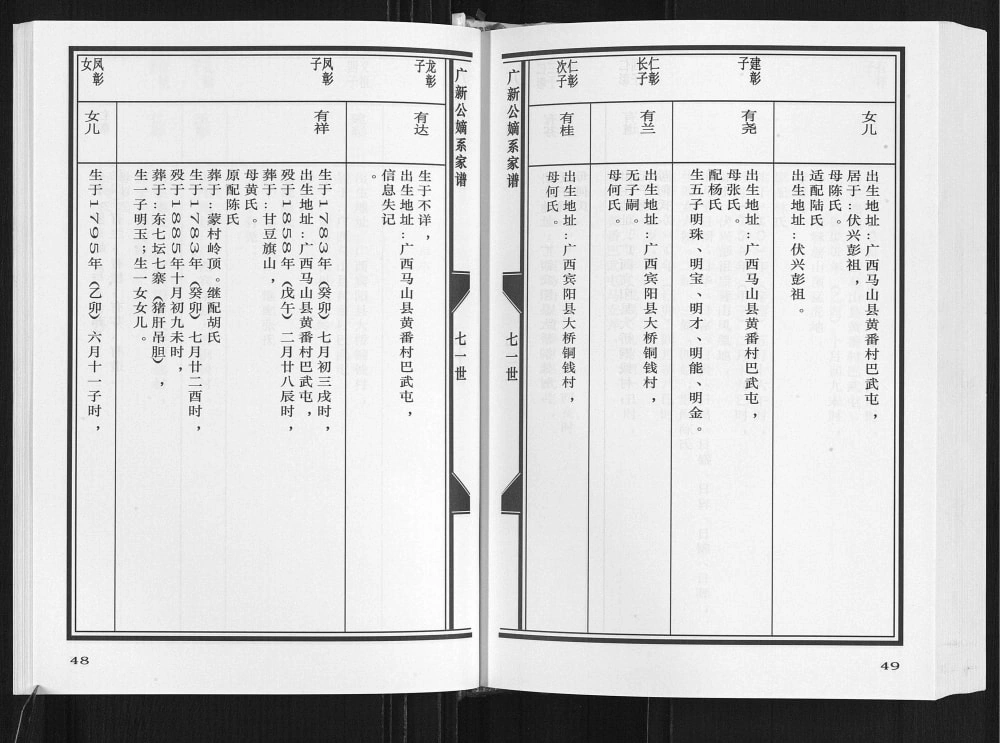 女儿
出生地址：广西马山县黄番村巴武屯，
居于：伏兴彭祖，
母陈氏。
适配陆氏
出生地址：伏兴彭祖。
建彰
子
有尧
出生地址：广西马山县黄番村巴武屯，
母张氏。
配杨氏。
生五子明珠、明宝、明才、明能、明金。
仁彰
长子
有兰
出生地址：广西宾阳县大桥铜钱村，
无子嗣。
母何氏。
仁彰
次子
有桂
出生地址：广西宾阳县大桥铜钱村，
母何氏。
广新公嫡系家谱
七一世
49
广新公嫡系家谱
七一世
龙彰
子
有达
生于不详，
出生地址：广西马山县黄番村巴武屯，
信息失记
。
凤彰
子
有祥
生于1783年（癸卯）七月初三戌时，
出生地址：广西马山县黄番村巴武屯，
殁于1858年（戊午）二月廿八辰时，
葬于：甘豆旗山，
母黄氏。
原配陈氏
葬于：蒙村岭顶。继配胡氏
生于1783年（癸卯）七月廿二酉时，
殁于1885年十月初九未时，
葬于：东七坛七寨（猪肝吊胆），
生一子明玉；生一女女儿。
凤彰
女
女儿
生于1795年（乙卯）六月十一子时，
48